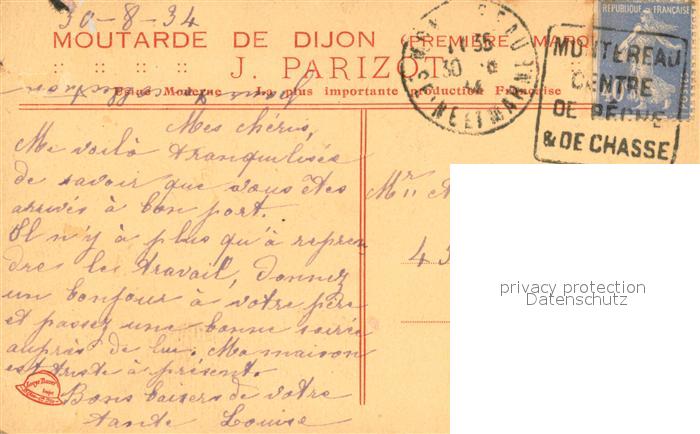 30-8-34
MOUTARDE DE DIJON (PREMIÈRE MARQ
J. PARIZOT
Usine Moderne La plus importante production Française
MONTEREAU
SEINE ET MARNE
30
RÉPUBLIQUE FRANÇAISE
MONTEREAU
CENTRE
DE PÊCHE
& DE CHASSE
Mes chéris,
Me voilà tranquilisée
de savoir que vous êtes
arrivés à bon port.
Il n'y à plus qu'à repren
dre le travail, donnez
un bonjour à votre père
et passez une bonne soirée
auprès de lui. Ma maison
est triste à présent.
Bons baisers de votre
tante Louise
Mr
43
privacy protection
Datenschutz